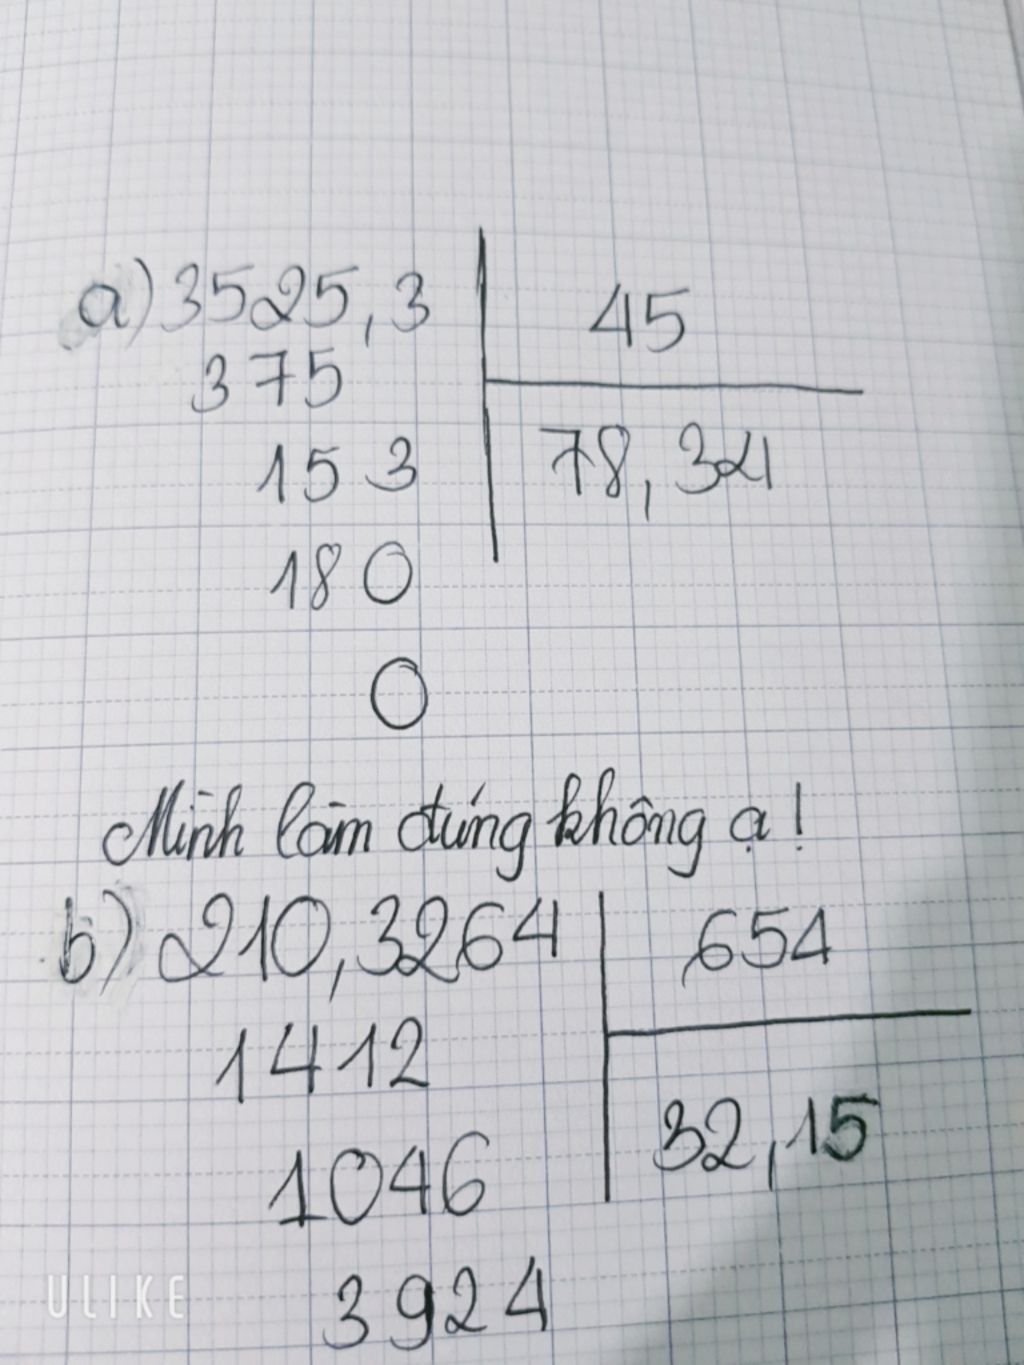 a) 3525,3 45
375 78,34
15 3
18 0
0
Mình làm đúng không ạ!
b) 210,3264 654
1412 32,15
1046
3924
ULIKE